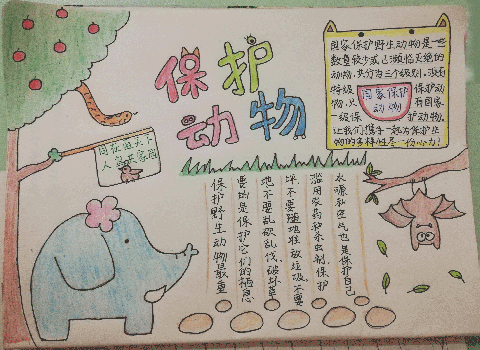 保护
动物
国家保护野生动物是一些
数量较少或已濒临灭绝的
动物,共分为三个级别,没有
特级 保护动
物,只 有国家
一级保 护动物,
让我们携手一起为保护生
物的多样性尽一份心力!
国家保护
动物
同在蓝天下
人鸟共家园
保护野生动物最重
要的是保护它们的栖息
地不要乱砍乱伐,破坏草
坪,不要随地堆放垃圾,不要
滥用农药和杀虫剂,保护
水源和空气也是保护自己